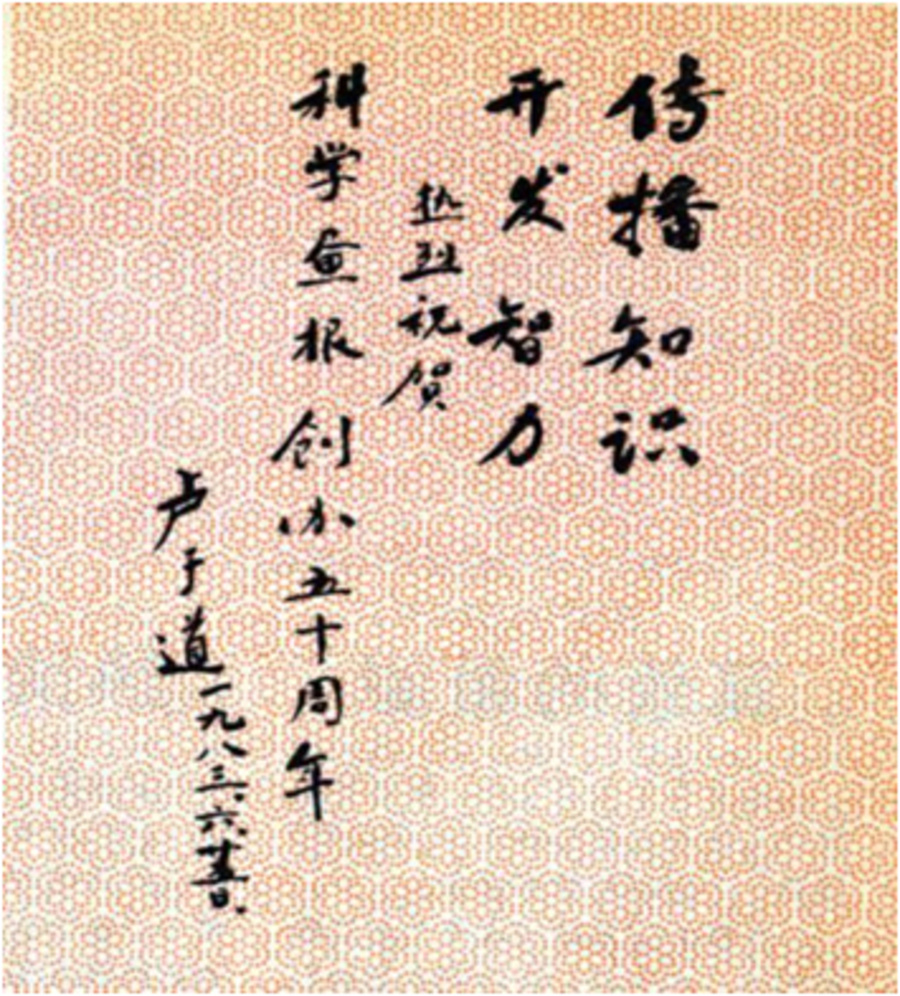 传播知识
开发智力
热烈祝贺
科学画报创办五十周年
卢于道
一九八三.六.廿五日.